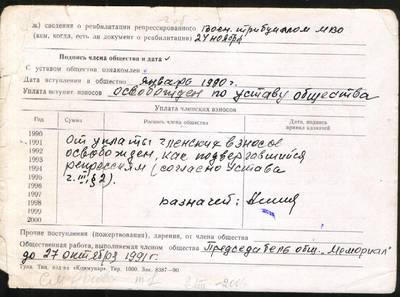 ж) сведения о реабилитации репрессированного Воен. трибуналом МВО
(кем, когда, есть ли документ о реабилитации) 24 ноября
Подпись члена общества и дата
С уставом общества ознакомлен
Дата вступления в общество январь 1990 г.
Уплата вступит. взносов освобожден по уставу общества
Уплата членских взносов
Год Сумма Роспись члена общества Дата, подпись приема казначей
1990
1991 От уплаты членских взносов
1992 освобожден, как подвергавшийся
1993
1994 репрессиям (согласно устава
1995 г. III § 2).
1996
1997
1998 казначей:
1999
2000
Прочие поступления (пожертвования), дарения, от члена общества
Общественная работа, выполняемая членом общества Председатель общ. "Мемориал"
до 27 октября 1991 г.
Гука. Тип. изд-ва «Коммунар». Тир. 1000. Зак. 8387—90